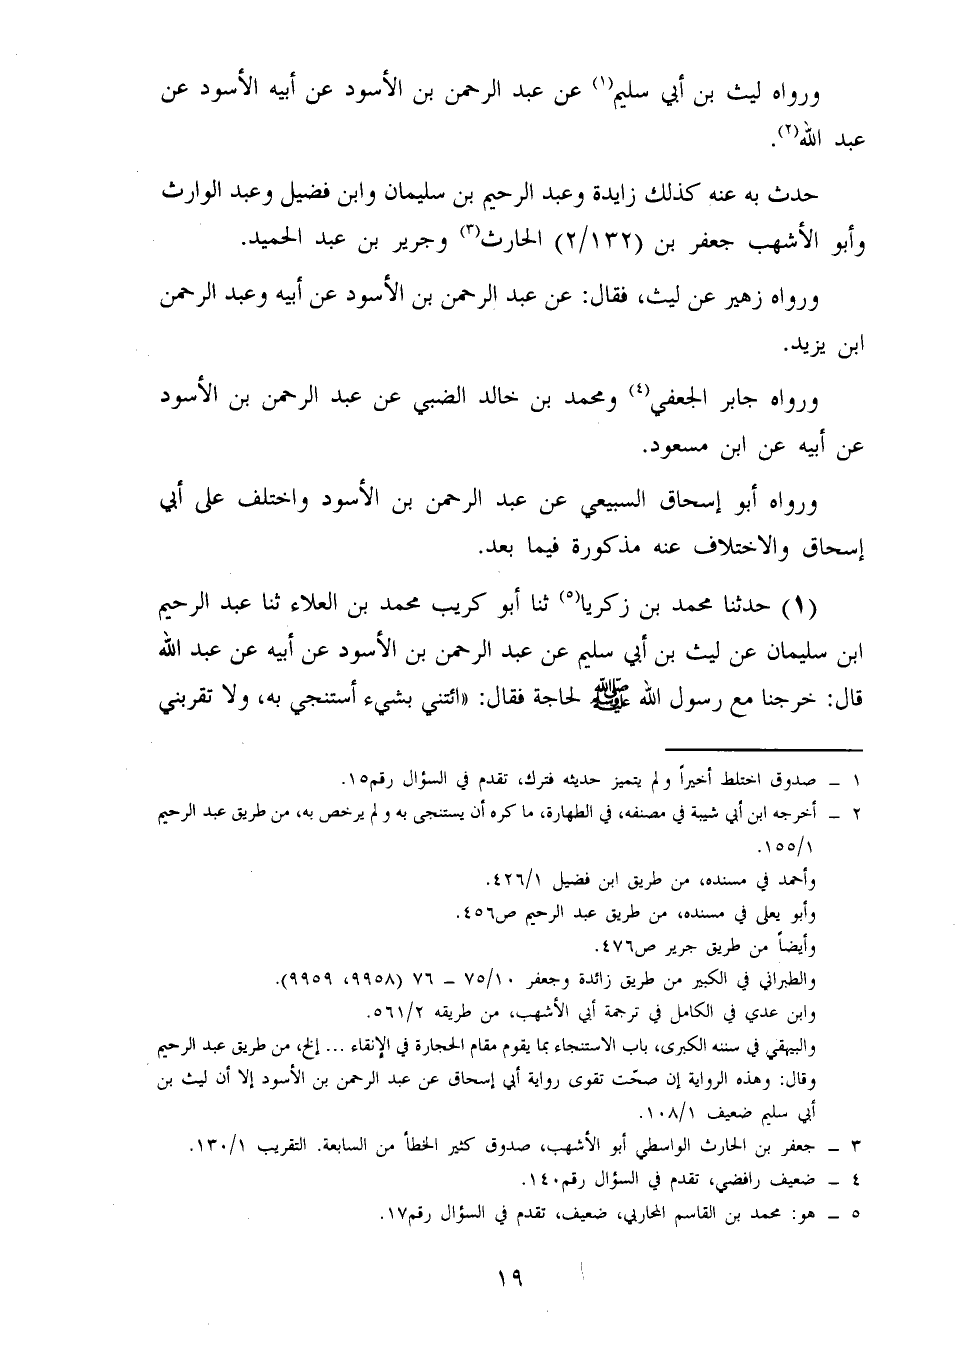 ورواه ليث بن أبي سليم(١) عن عبد الرحمن بن الأسود عن أبيه الأسود عن
عبد الله(٢).
حدث به عنه كذلك زايدة وعبد الرحيم بن سليمان وابن فضيل وعبد الوارث
وأبو الأشهب جعفر بن (٢/١٣٢) الحارث(٣) وجرير بن عبد الحميد.
ورواه زهير عن ليث، فقال: عن عبد الرحمن بن الأسود عن أبيه وعبد الرحمن
ابن يزيد.
ورواه جابر الجعفي(٤) ومحمد بن خالد الضبي عن عبد الرحمن بن الأسود
عن أبيه عن ابن مسعود.
ورواه أبو إسحاق السبيعي عن عبد الرحمن بن الأسود واختلف على أبي
إسحاق والاختلاف عنه مذكورة فيما بعد.
(١) حدثنا محمد بن زكريا(٥) ثنا أبو كريب محمد بن العلاء ثنا عبد الرحيم
ابن سليمان عن ليث بن أبي سليم عن عبد الرحمن بن الأسود عن أبيه عن عبد الله
قال: خرجنا مع رسول الله ﷺ لحاجة فقال: «ائتني بشيء أستنجي به، ولا تقربني
١ ـ صدوق اختلط أخيراً ولم يتميز حديثه فترك، تقدم في السؤال رقم١٥.
٢ ـ أخرجه ابن أبي شيبة في مصنفه، في الطهارة، ما كره أن يستنجى به ولم يرخص به، من طريق عبد الرحيم
١/١٥٥.
وأحمد في مسنده، من طريق ابن فضيل ٤٢٦/١.
وأبو يعلى في مسنده، من طريق عبد الرحيم ص٤٥٦.
وأيضاً من طريق جرير ص٤٧٦.
والطبراني في الكبير من طريق زائدة وجعفر ٧٥/١٠ ـ ٧٦ (٩٩٥٨، ٩٩٥٩).
وابن عدي في الكامل في ترجمة أبي الأشهب، من طريقه ٥٦١/٢.
والبيهقي في سننه الكبرى، باب الاستنجاء بما يقوم مقام الحجارة في الإنقاء ... إلخ، من طريق عبد الرحيم
وقال: وهذه الرواية إن صحّت تقوى رواية أبي إسحاق عن عبد الرحمن بن الأسود إلا أن ليث بن
أبي سليم ضعيف ١٠٨/١.
٣ ـ جعفر بن الحارث الواسطي أبو الأشهب، صدوق كثير الخطأ من السابعة. التقريب ١٣٠/١.
٤ ـ ضعيف رافضي، تقدم في السؤال رقم١٤٠.
٥ ـ هو: محمد بن القاسم المحاربي، ضعيف، تقدم في السؤال رقم١٧.
١٩